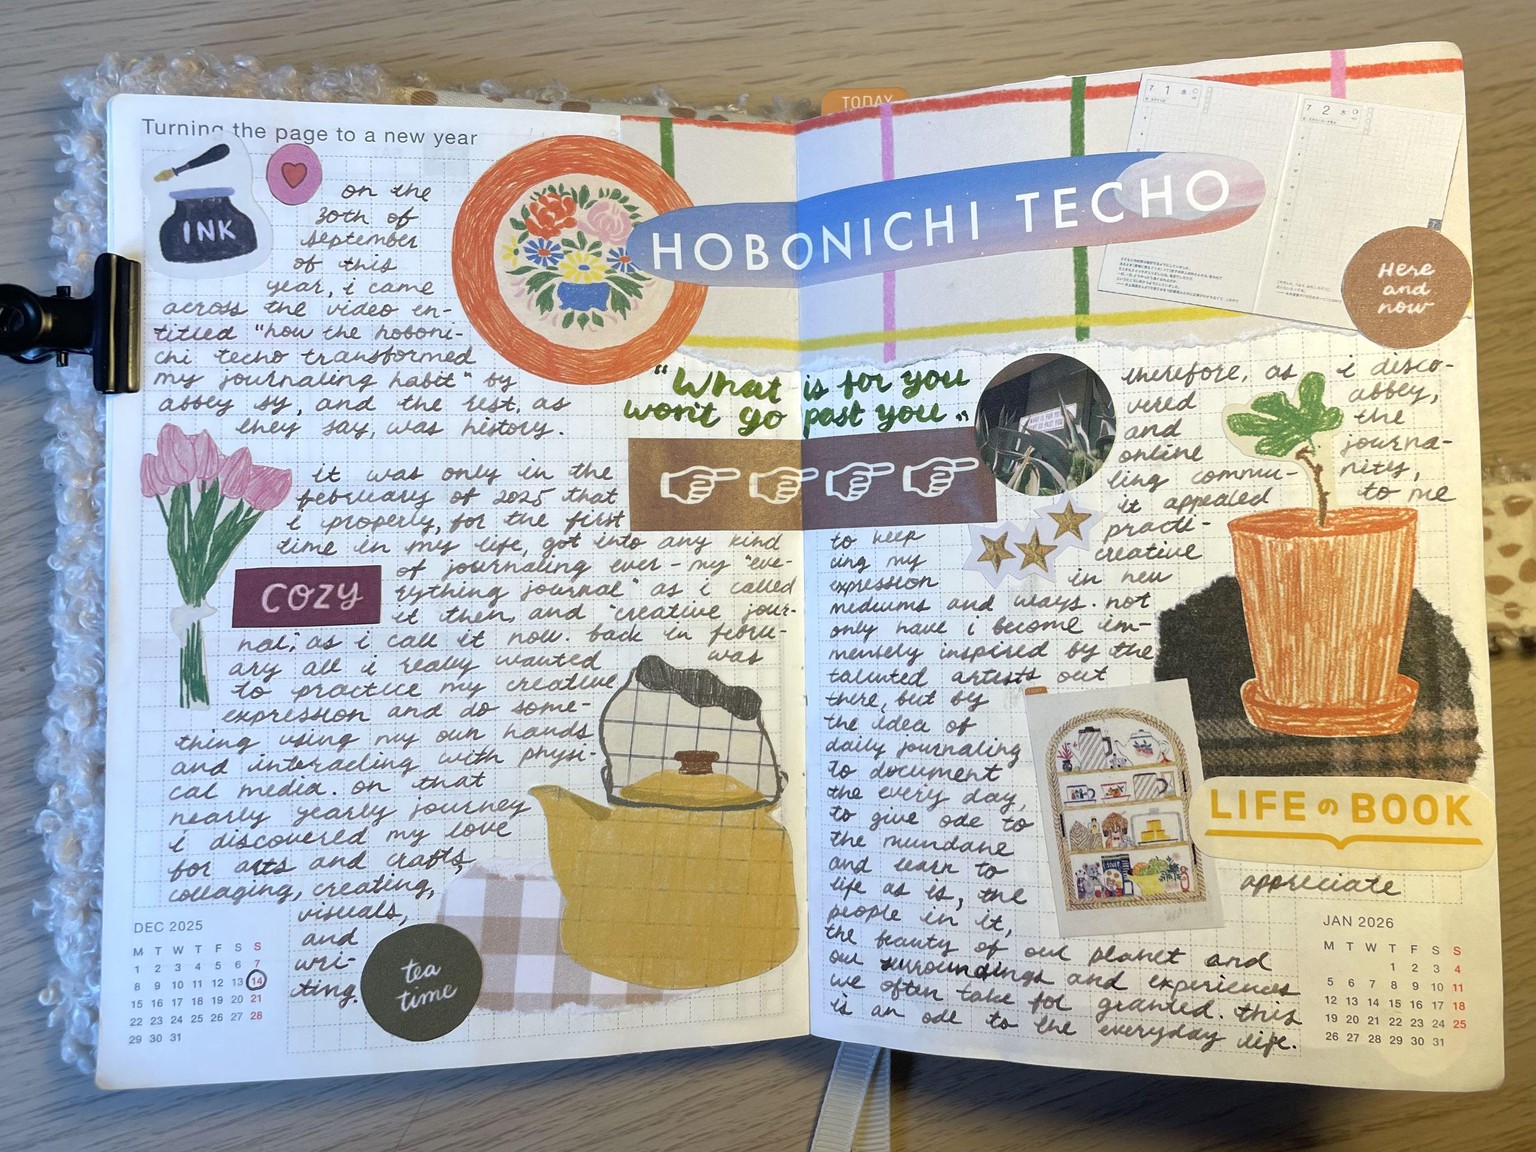 TODAY
Turning the page to a new year
INK
on the
30th of
september
of this
year, i came
across the video en-
titled "how the hoboni-
chi techo transformed
my journaling habit" by
abbey sy, and the rest, as
they say, was history.
it was only in the
february of 2025 that
i properly, for the first
time in my life, got into any kind
of journaling ever - my "eve-
rything journal" as i called
it then, and "creative jour-
nal", as i call it now. back in febru-
ary all i really wanted was
to practice my creative
expression and do some-
thing using my own hands
and interacting with physi-
cal media. on that
nearly yearly journey
i discovered my love
for arts and crafts,
collaging, creating,
visuals,
and
wri-
ting.
COZY
tea
time
DEC 2025
M T W T F S S
1 2 3 4 5 6 7
8 9 10 11 12 13 14
15 16 17 18 19 20 21
22 23 24 25 26 27 28
29 30 31
HOBONICHI TECHO
7 1 水
7 2 木
Here
and
now
"What is for you
won't go past you"
therefore, as i disco-
vered abbey,
and the
online journa-
ling commu- nity,
it appealed to me
to keep practi-
cing my creative
expression in new
mediums and ways. not
only have i become im-
mensely inspired by the
talented artists out
there, but by
the idea of
daily journaling
to document
the every day,
to give ode to
the mundane
and learn to appreciate
life as is, the
people in it,
the beauty of our planet and
our surroundings and experiences
we often take for granted. this
is an ode to the everyday life.
LIFEのBOOK
JAN 2026
M T W T F S S
1 2 3 4
5 6 7 8 9 10 11
12 13 14 15 16 17 18
19 20 21 22 23 24 25
26 27 28 29 30 31